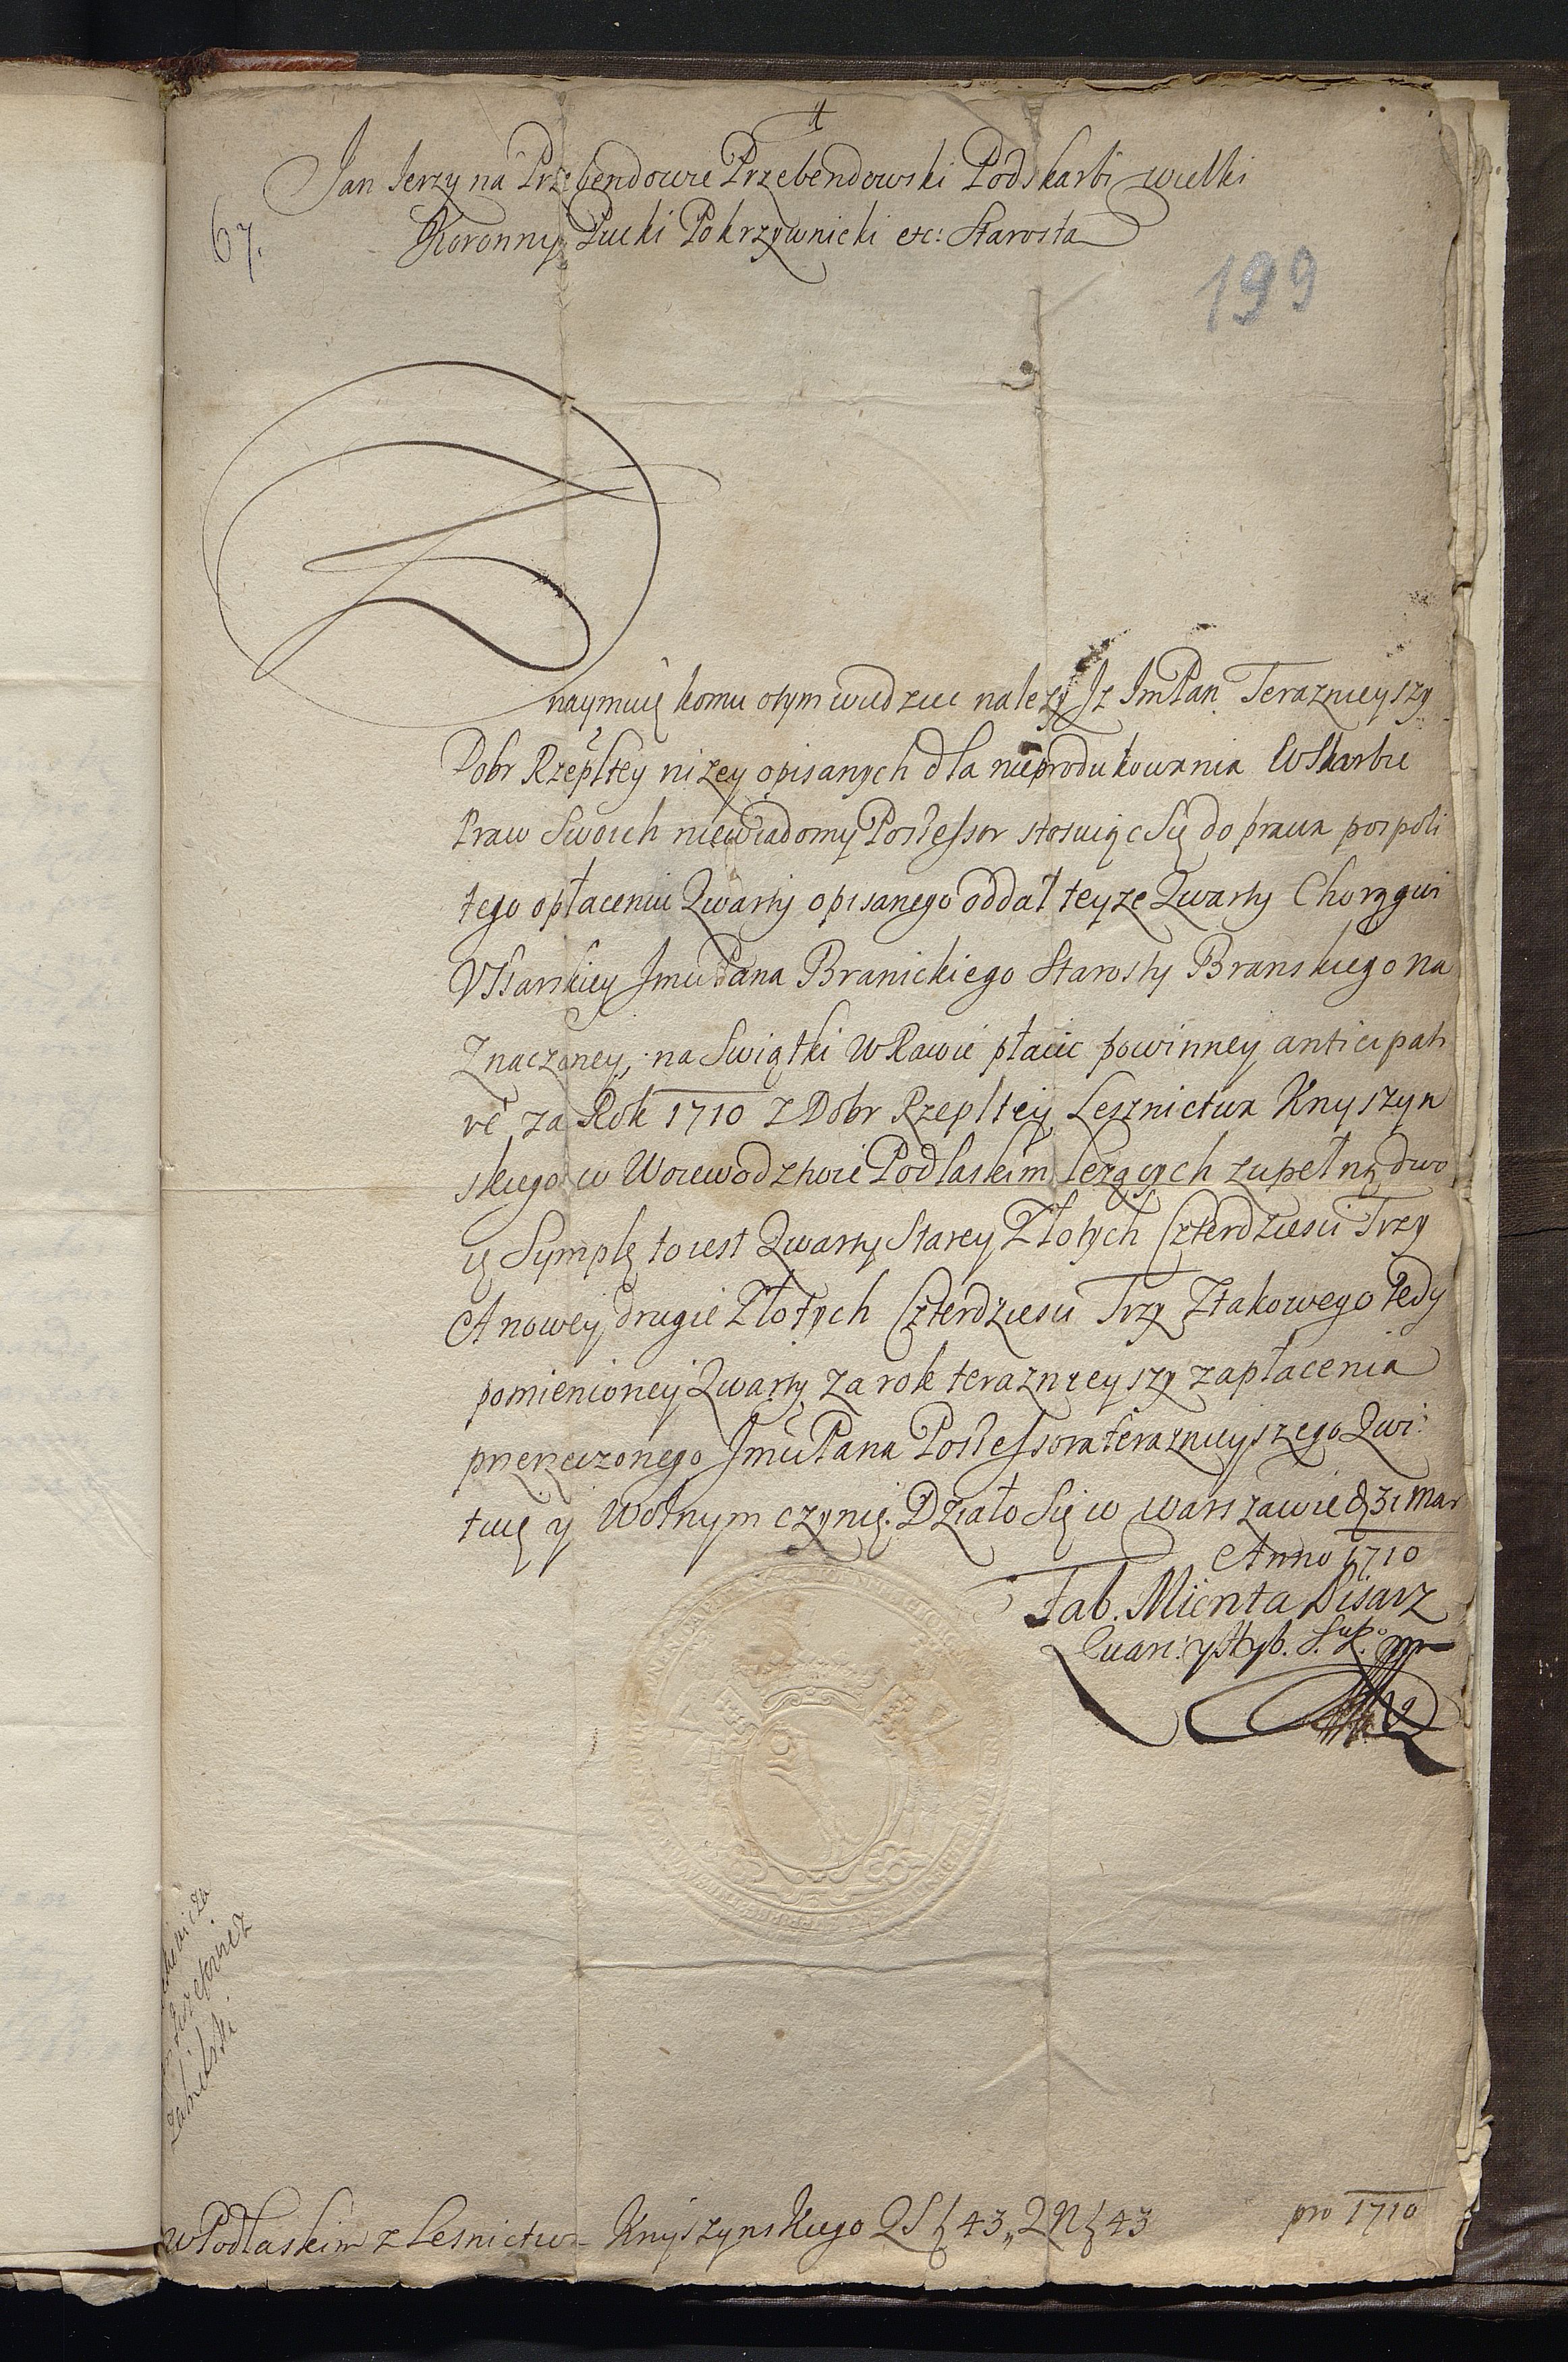 Jan Jerzy na Przebendowie Przebendowski Podskarbi wielki
Koronny Pucki Pokrzywnicki etc: Starosta
67.
199
Znaymuię komu otym wiedziec nalezy Jz ImPan Teraznieyszy
Dobr Rzeplltey nizey opisanych dla nieprodukowania WSkarbie
Praw Swoich niewiadomy Possessor stosuiąc Się do prawa pospoli
tego opłaceniu Qwarty opisanego oddał teyze Qwarty Chorągwi
Vssarskiey Jmci Pana Branickiego Starosty Branskiego na
Znaczoney, na Swiątki w Rawie płacic powinney anticipati
ve za Rok 1710 z Dobr Rzeplltey Lesznictwa Knyszyn
skiego w Woiewodztwie Podlaskim lezących zupełną dwo
ię Symplę toiest Qwarty Starey Złotych Czterdziesci Trzy
A nowey drugie Złotych Czterdziesci Trzy Ztakowego tedy
pomienioney Qwarty za rok teraznieyszy zapłacenia
przerzeczonego Jmci Pana Possessora teraznieyszego Qwi
tuię y Wolnym czynię. Działo Się w warszawie d 31 Mar
Anno 1710
Fab. Mienta Pisarz
Quart: y Hyb.
w Podlaskim z Lesnictwa Knyszynskiego QS ƶ 43 „ QN ƶ 43
pro 1710